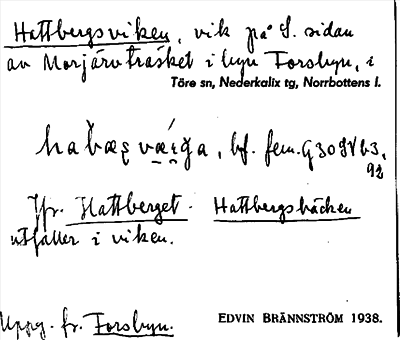 Hattbergsviken, vik på S. sidan
av Morjärvträsket i byn Forsbyn, i
Töre sn, Nederkalix tg, Norrbottens l.
bf. fem.
Jfr. Hattberget. Hattbergsbäcken
utfaller i viken.
Uppg. fr. Forsbyn.
EDVIN BRÄNNSTRÖM 1938.